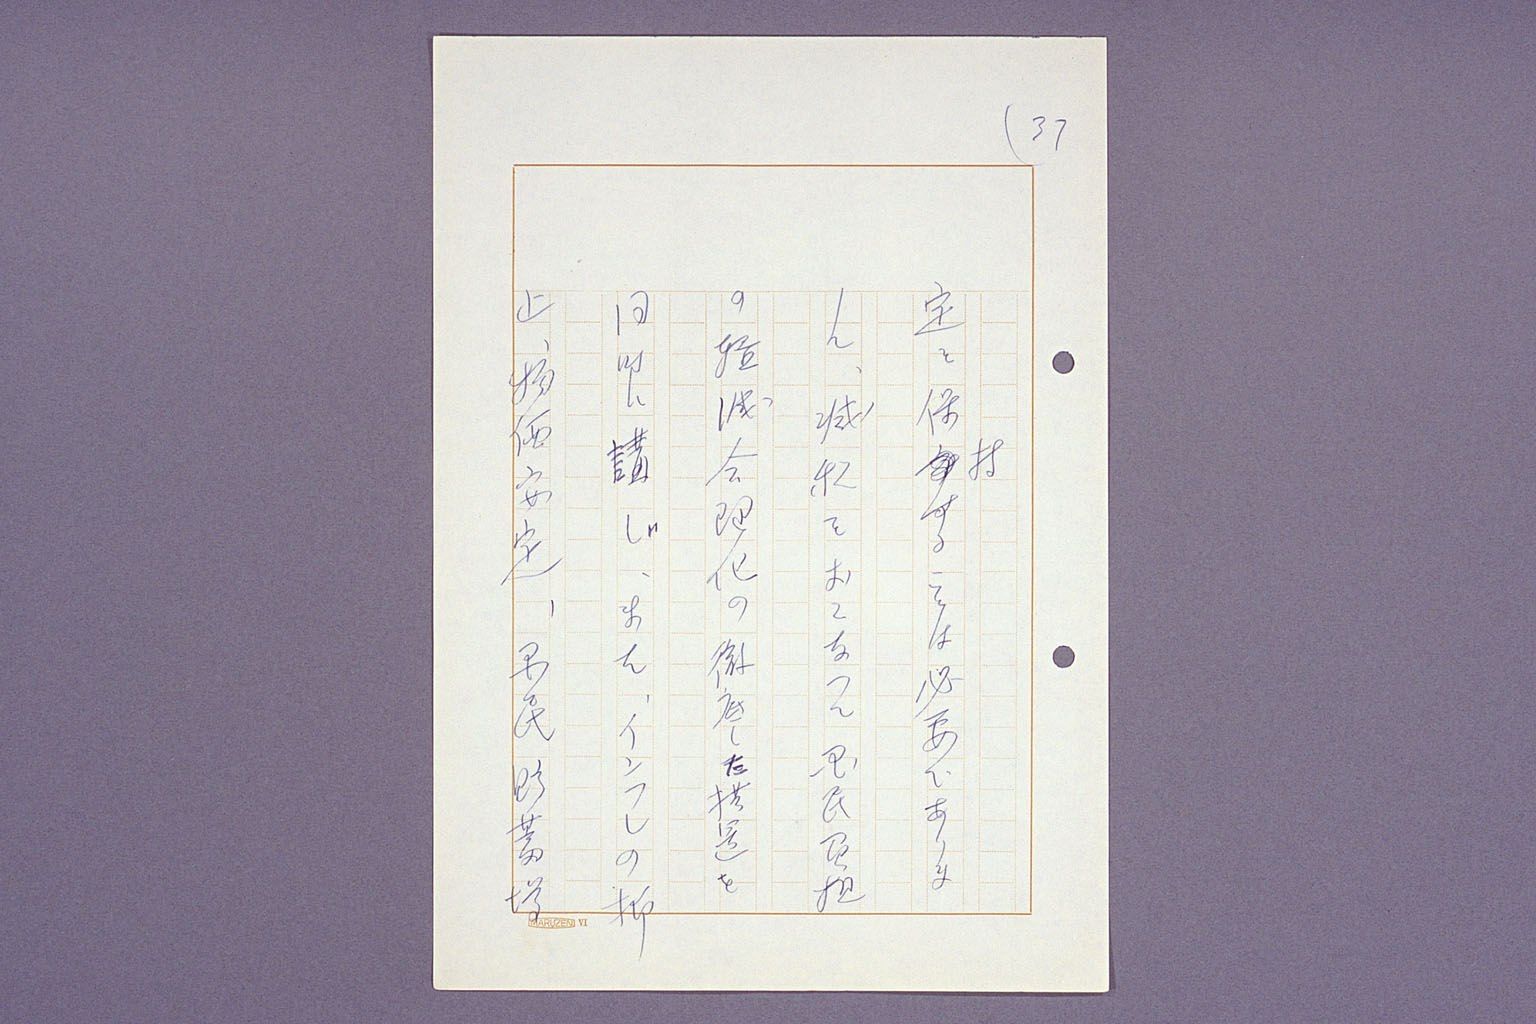 (37
定を保持することは必要でありま
して、減税をおこなつて国民負担
の軽減合理化の徹底した措置を
同時に講じ、また、インフレの抑
止、物価安定、国民貯蓄増
MARUZEN VI